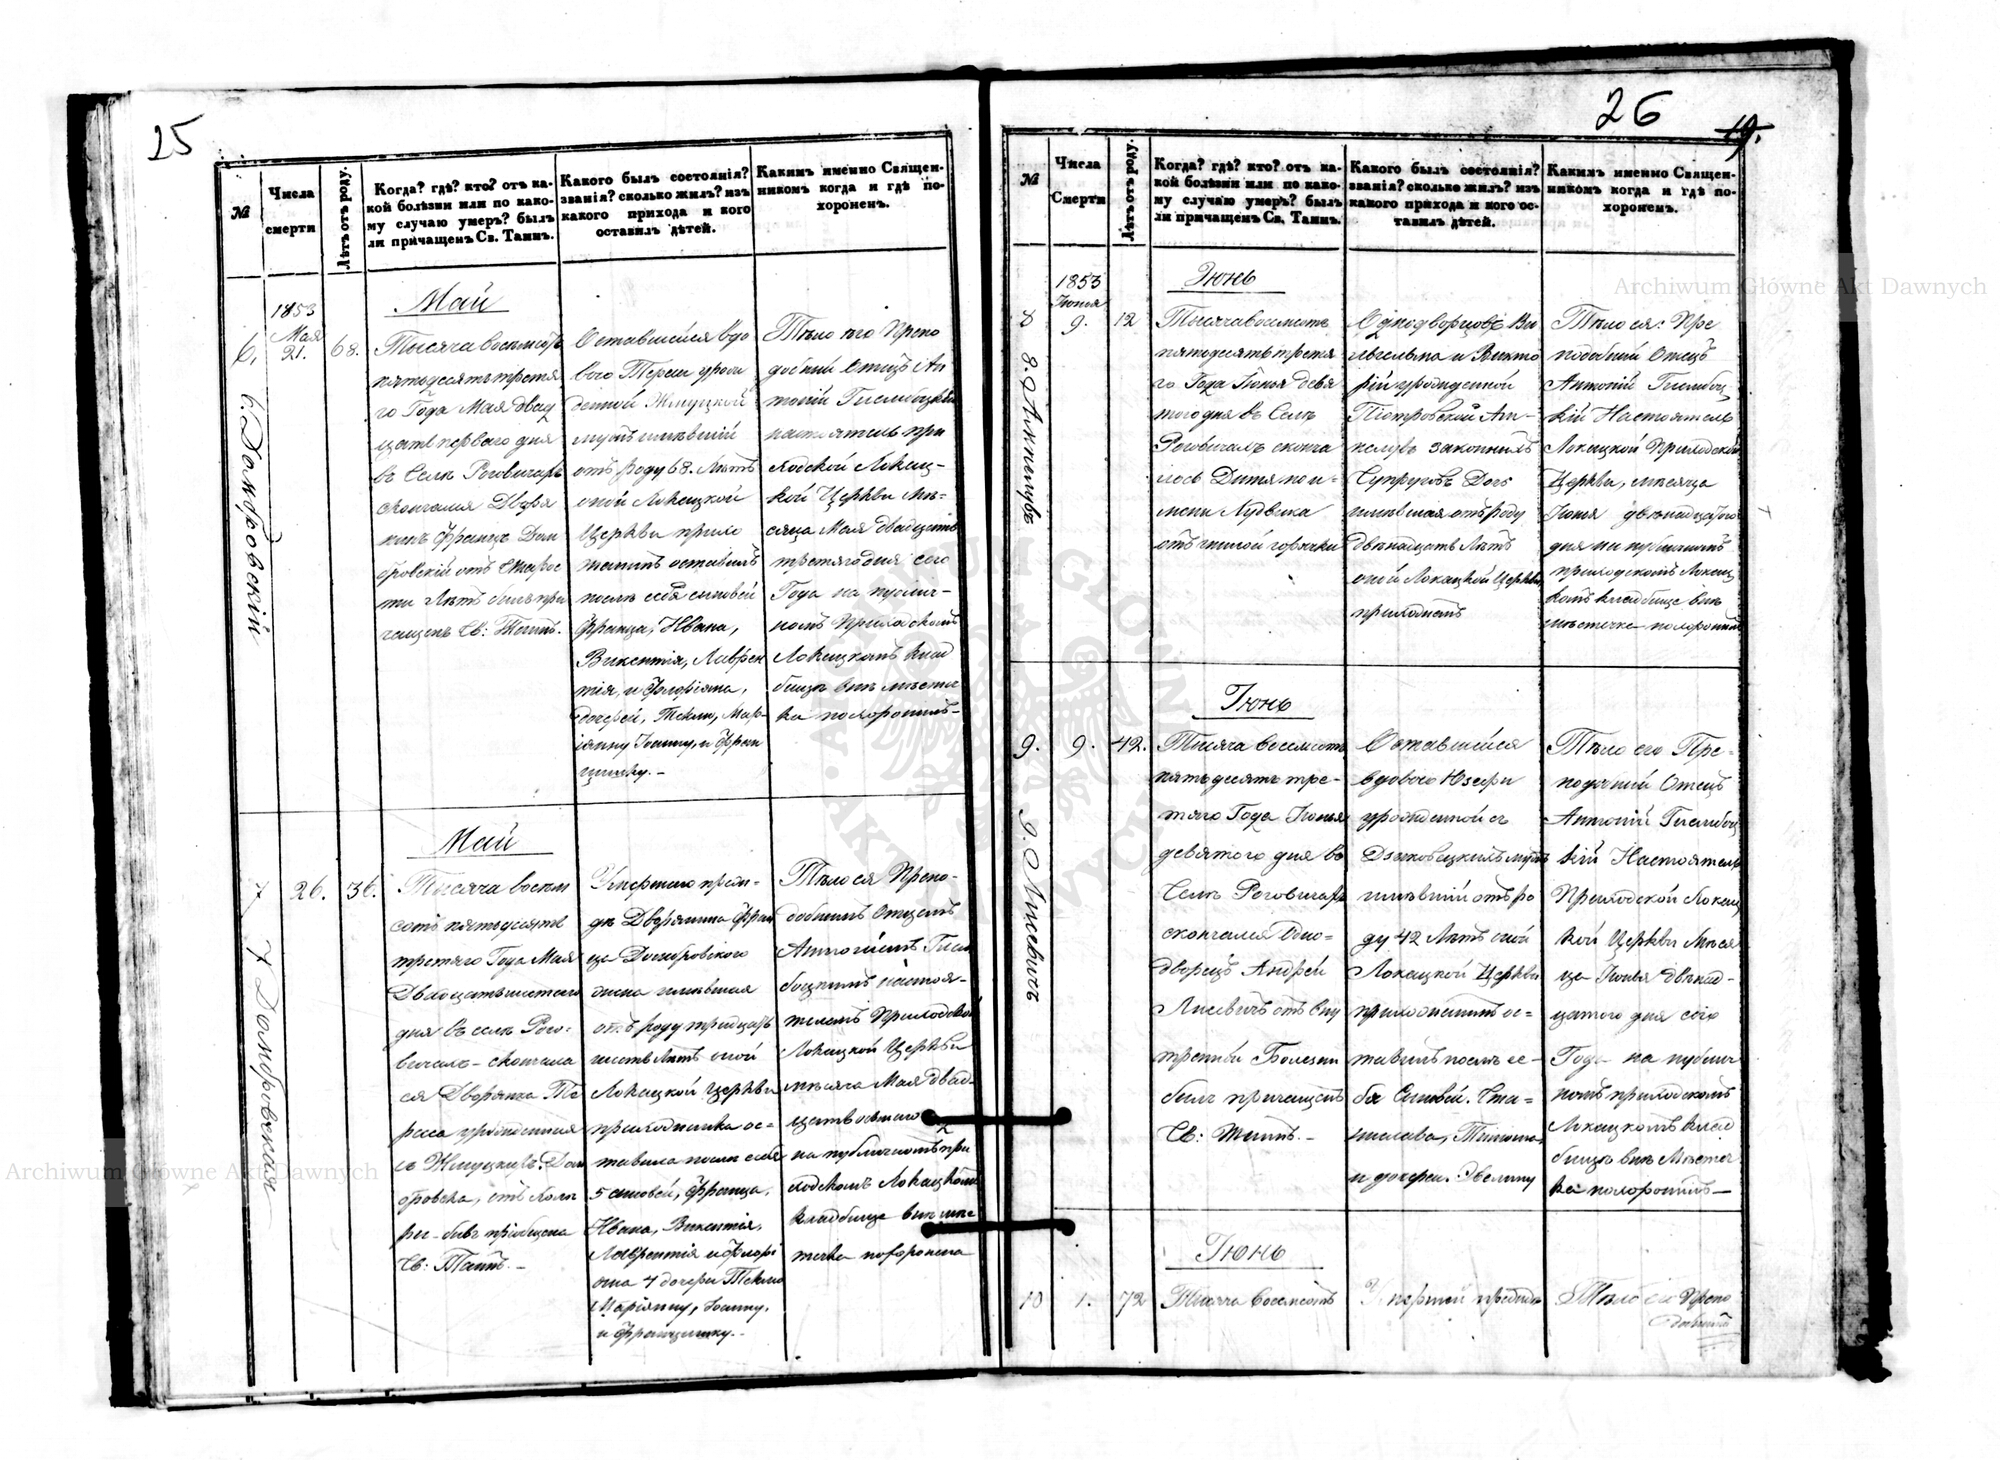 25
№
Числа
смерти
Лѣтъ отъ роду.
Когда? гдѣ? кто? отъ ка-
кой болѣзни или по како-
му случаю умеръ? былъ
ли причащенъ Св. Таинъ.
Какого былъ состоянія?
званія? сколько жилъ? изъ
какого прихода и кого
оставилъ дѣтей.
Какимъ именно Священ-
никомъ когда и гдѣ по-
хороненъ.
1853
Мая
6. 21. 68.
6. Домбровскій
Май
Тысяча восемьсотъ
пятьдесятъ третя
го Года Мая двад
цать перваго дня
въ Селѣ Роговичахъ
скончался Дворя
нинъ Францъ Дом
бровскій отъ старос
ти Лѣтъ былъ при
чащенъ Св: Таинъ.
Оставшейся вдо
вою Терезы урож
денной Жмуцкой
мужъ имѣвшій
отъ роду 68. Лѣтъ
оной Локацкой
Церкви прихо
жанинъ оставилъ
послѣ себя сыновей
Франца, Ивана,
Викентія, Лаврен
тія, и Флоріяна,
дочерей, Теклю, Мар-
іянну Іоанну, и Фран
цишку. -
Тѣло его Препо
добный Отецъ Ан
тоній Гженбоцкій
настоятель при
ходской Локац-
кой Церкви мѣ-
сяца Мая двадцать
третяго дня сего
Года на публич-
номъ Приходскомъ
Локацкомъ клад
бищѣ внѣ мѣстеч
ка похоронилъ-
7 26. 36.
7 Домбровская
Май
Тысяча восемь
сотъ пятьдесятъ
третяго Года Мая
Двадцать шестаго
дня въ селѣ Рого-
вичахъ - скончала
ся Дворянка Те
реса урожденная
съ Жмуцкихъ Дом
бровска, отъ холе
ры - бывъ пріобщена
Св: Таинъ. -
Умершаго преж-
де Дворянина Фран
ца Домбровского
жена имѣвшая
отъ роду тридцать
шесть Лѣтъ оной
Локацкой Церкви
прихожанка ос-
тавила послѣ себя
5 сыновей, Франца,
Ивана, Викентія,
Лаврентія и Флорі
яна 4 дочери Теклю
Маріянну, Іоанну,
и Францишку. -
Тѣло ея Препо-
добнымъ Отцемъ
Антоніемъ
настоя-
телемъ Приходской
Локацкой Церкви
мѣсяца Мая двад-
цать осьмаго
на публичномъ при
ходскомъ Локацкомъ
кладбище внѣ мѣс
течка похоронена
26
19.
№
Числа
Смерти
Лѣтъ отъ роду.
Когда? гдѣ? кто? отъ ка-
кой болѣзни или по како-
му случаю умеръ? былъ
ли причащенъ Св. Таинъ.
Какого былъ состоянія?
званія? сколько жилъ? изъ
какого прихода и кого ос-
тавилъ дѣтей.
Какимъ именно Священ-
никомъ когда и гдѣ по-
хороненъ.
1853
Іюнья
8 9. 12
Іюнь
Тысяча восемьсотъ
пятьдесятъ третя
го Года Іюнья девя
того дня въ Селѣ
Роговичахъ сконча
лось Дитя по и-
мени Людвика
отъ гнилой горячки
Однодворцовъ Ви
гельма и Викто
рій урожденной
Піотровской
законныхъ
Супруговъ Дочь
имѣвшая отъ роду
двѣнадцать Лѣтъ
оной Локацкой Церкви
прихожанъ
Тѣло ея: Пре
подобній Отецъ
Антоній
кій Настоятель
Локацкой Приходской
Церкви, мѣсяца
Іюнья двѣнадцатого
дня на публичномъ
приходскомъ Локац
комъ кладбище внѣ
мѣстечка похоронилъ
Іюнь
9. 9. 42.
9. Лисевичъ
Тысяча восемьсотъ
пятьдесятъ тре-
тяго Года Іюнья
девятого дня въ
Селѣ Роговичахъ
скончался Одно-
дворецъ Андрей
Лисевичъ отъ вну
тренней Болезни
былъ причащенъ
Св: Таинъ. -
Оставшейся
вдовою Юзефы
урожденной съ
мужъ
имѣвшій отъ ро
ду 42 Лѣтъ оной
Локацкой Церкви
прихожанинъ ос-
тавилъ послѣ се-
бя Сыновей. Ста-
нислава,
и дочери. Эвелину
Тѣло его Пре-
подобній Отецъ
Антоній
кій Настоятель
Приходской Локац
кой Церкви Мѣся
ца Іюнья двѣнад-
цатого дня сего
Года на публич
номъ приходскомъ
Локацкомъ клад
бищѣ внѣ Мѣстеч
ка похоронилъ-
Іюнь
10 1. 72
Тысяча Восемьсотъ
Тѣло Препо
добный
Archiwum Główne Akt Dawnych
Archiwum Główne Akt Dawnych